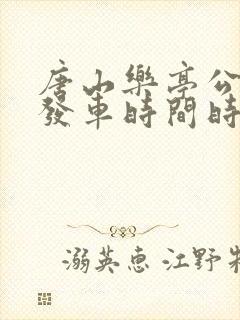 唐山樂亭公
發車時間時
溺英惠 江野